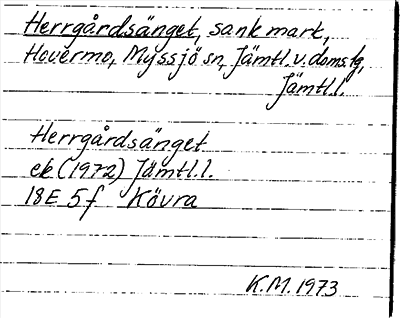 Herrgårdsänget, sank mark,
Hovermo, Myssjö sn, Jämtl. v. doms.lg,
Jämtl.l.
Herrgårdsänget
ek (1972) Jämtl.l.
18E 5f Kövra
K.M. 1973